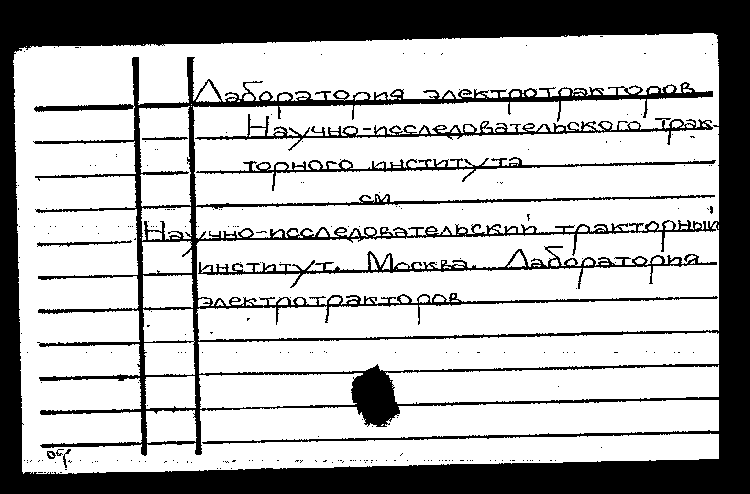 Лаборатория электротракторов
Научно-исследовательского трак-
торного института
см.
Научно-исследовательский тракторный
институт. Москва. Лаборатория
электротракторов